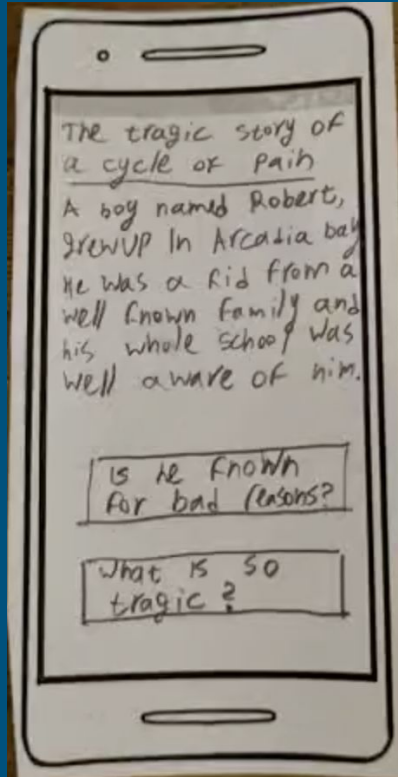 The tragic story of
a cycle of pain
A boy named Robert,
grew up In Arcadia bay
He was a kid from a
well known family and
his whole school was
well aware of him.
is he known
for bad reasons?
What is so
tragic?